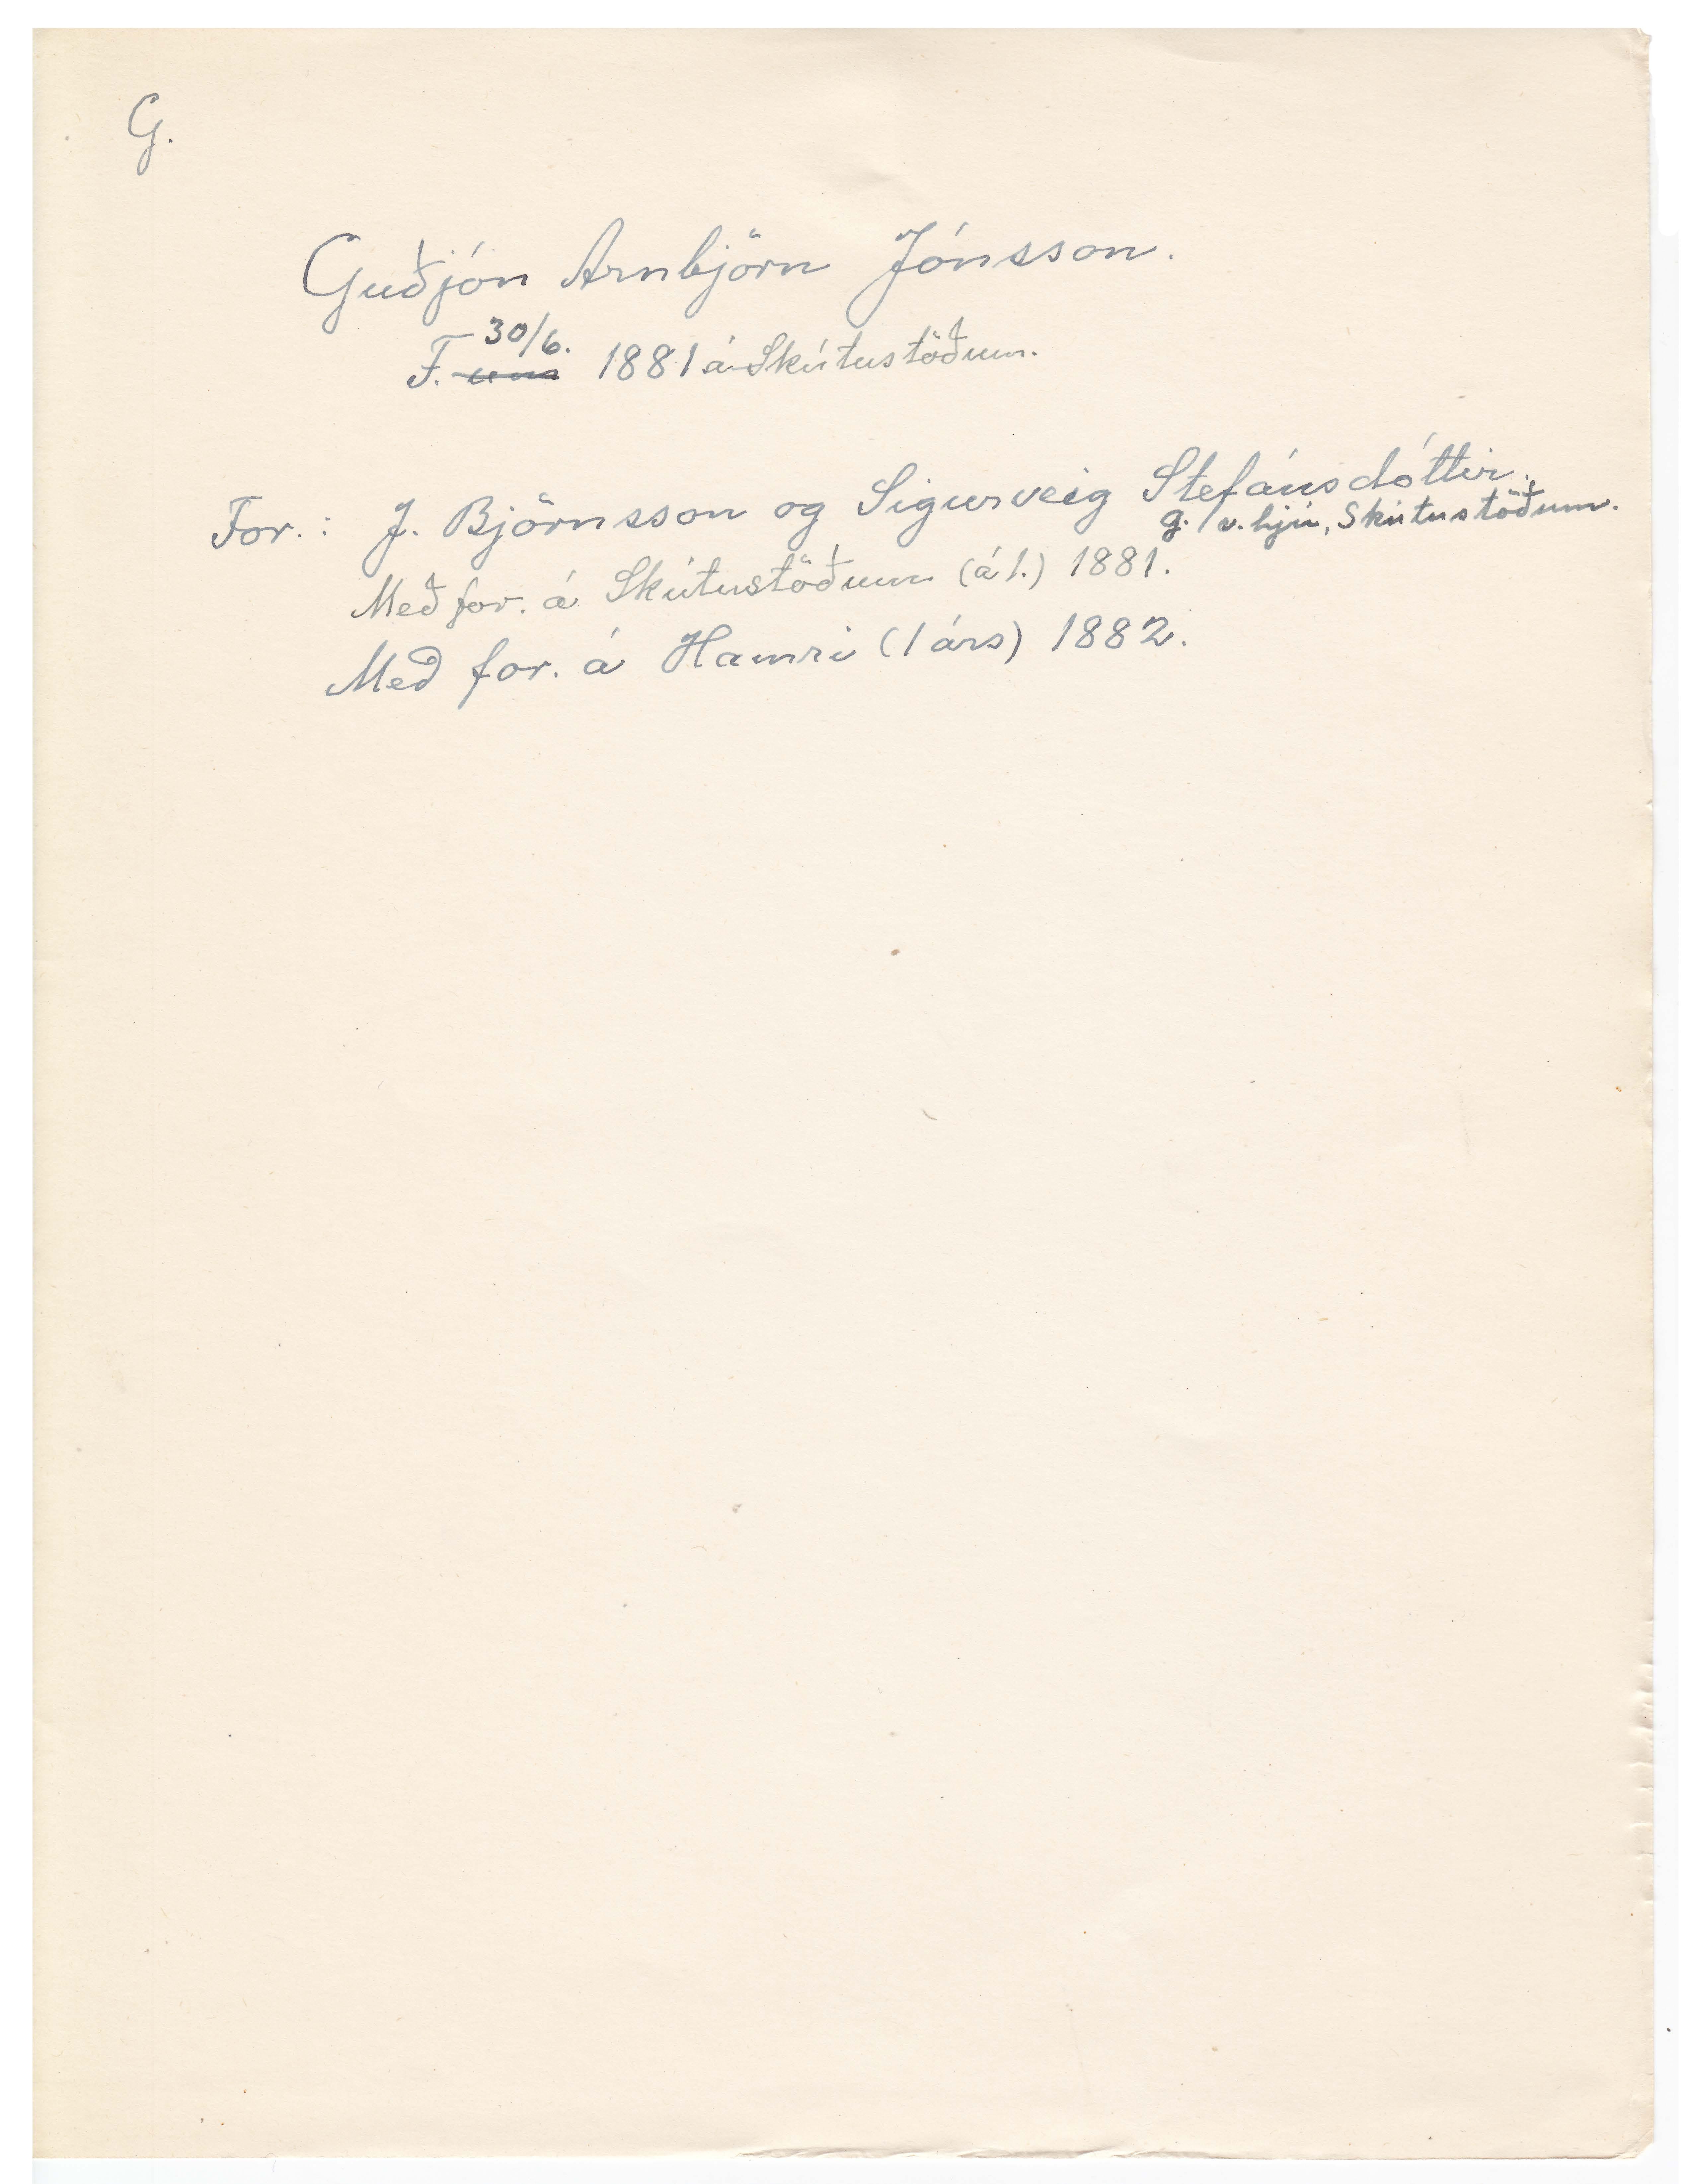 G.
Guðjón Arnbjörn Jónsson.
30/6.
F. um 1881 á Skútustöðum.
For.: J. Björnsson og Sigurveig Stefánsdóttir.
g. v. hjú, Skútustöðum.
Með for. á Skútustöðum (á 1.) 1881.
Með for. á Hamri (1 árs) 1882.